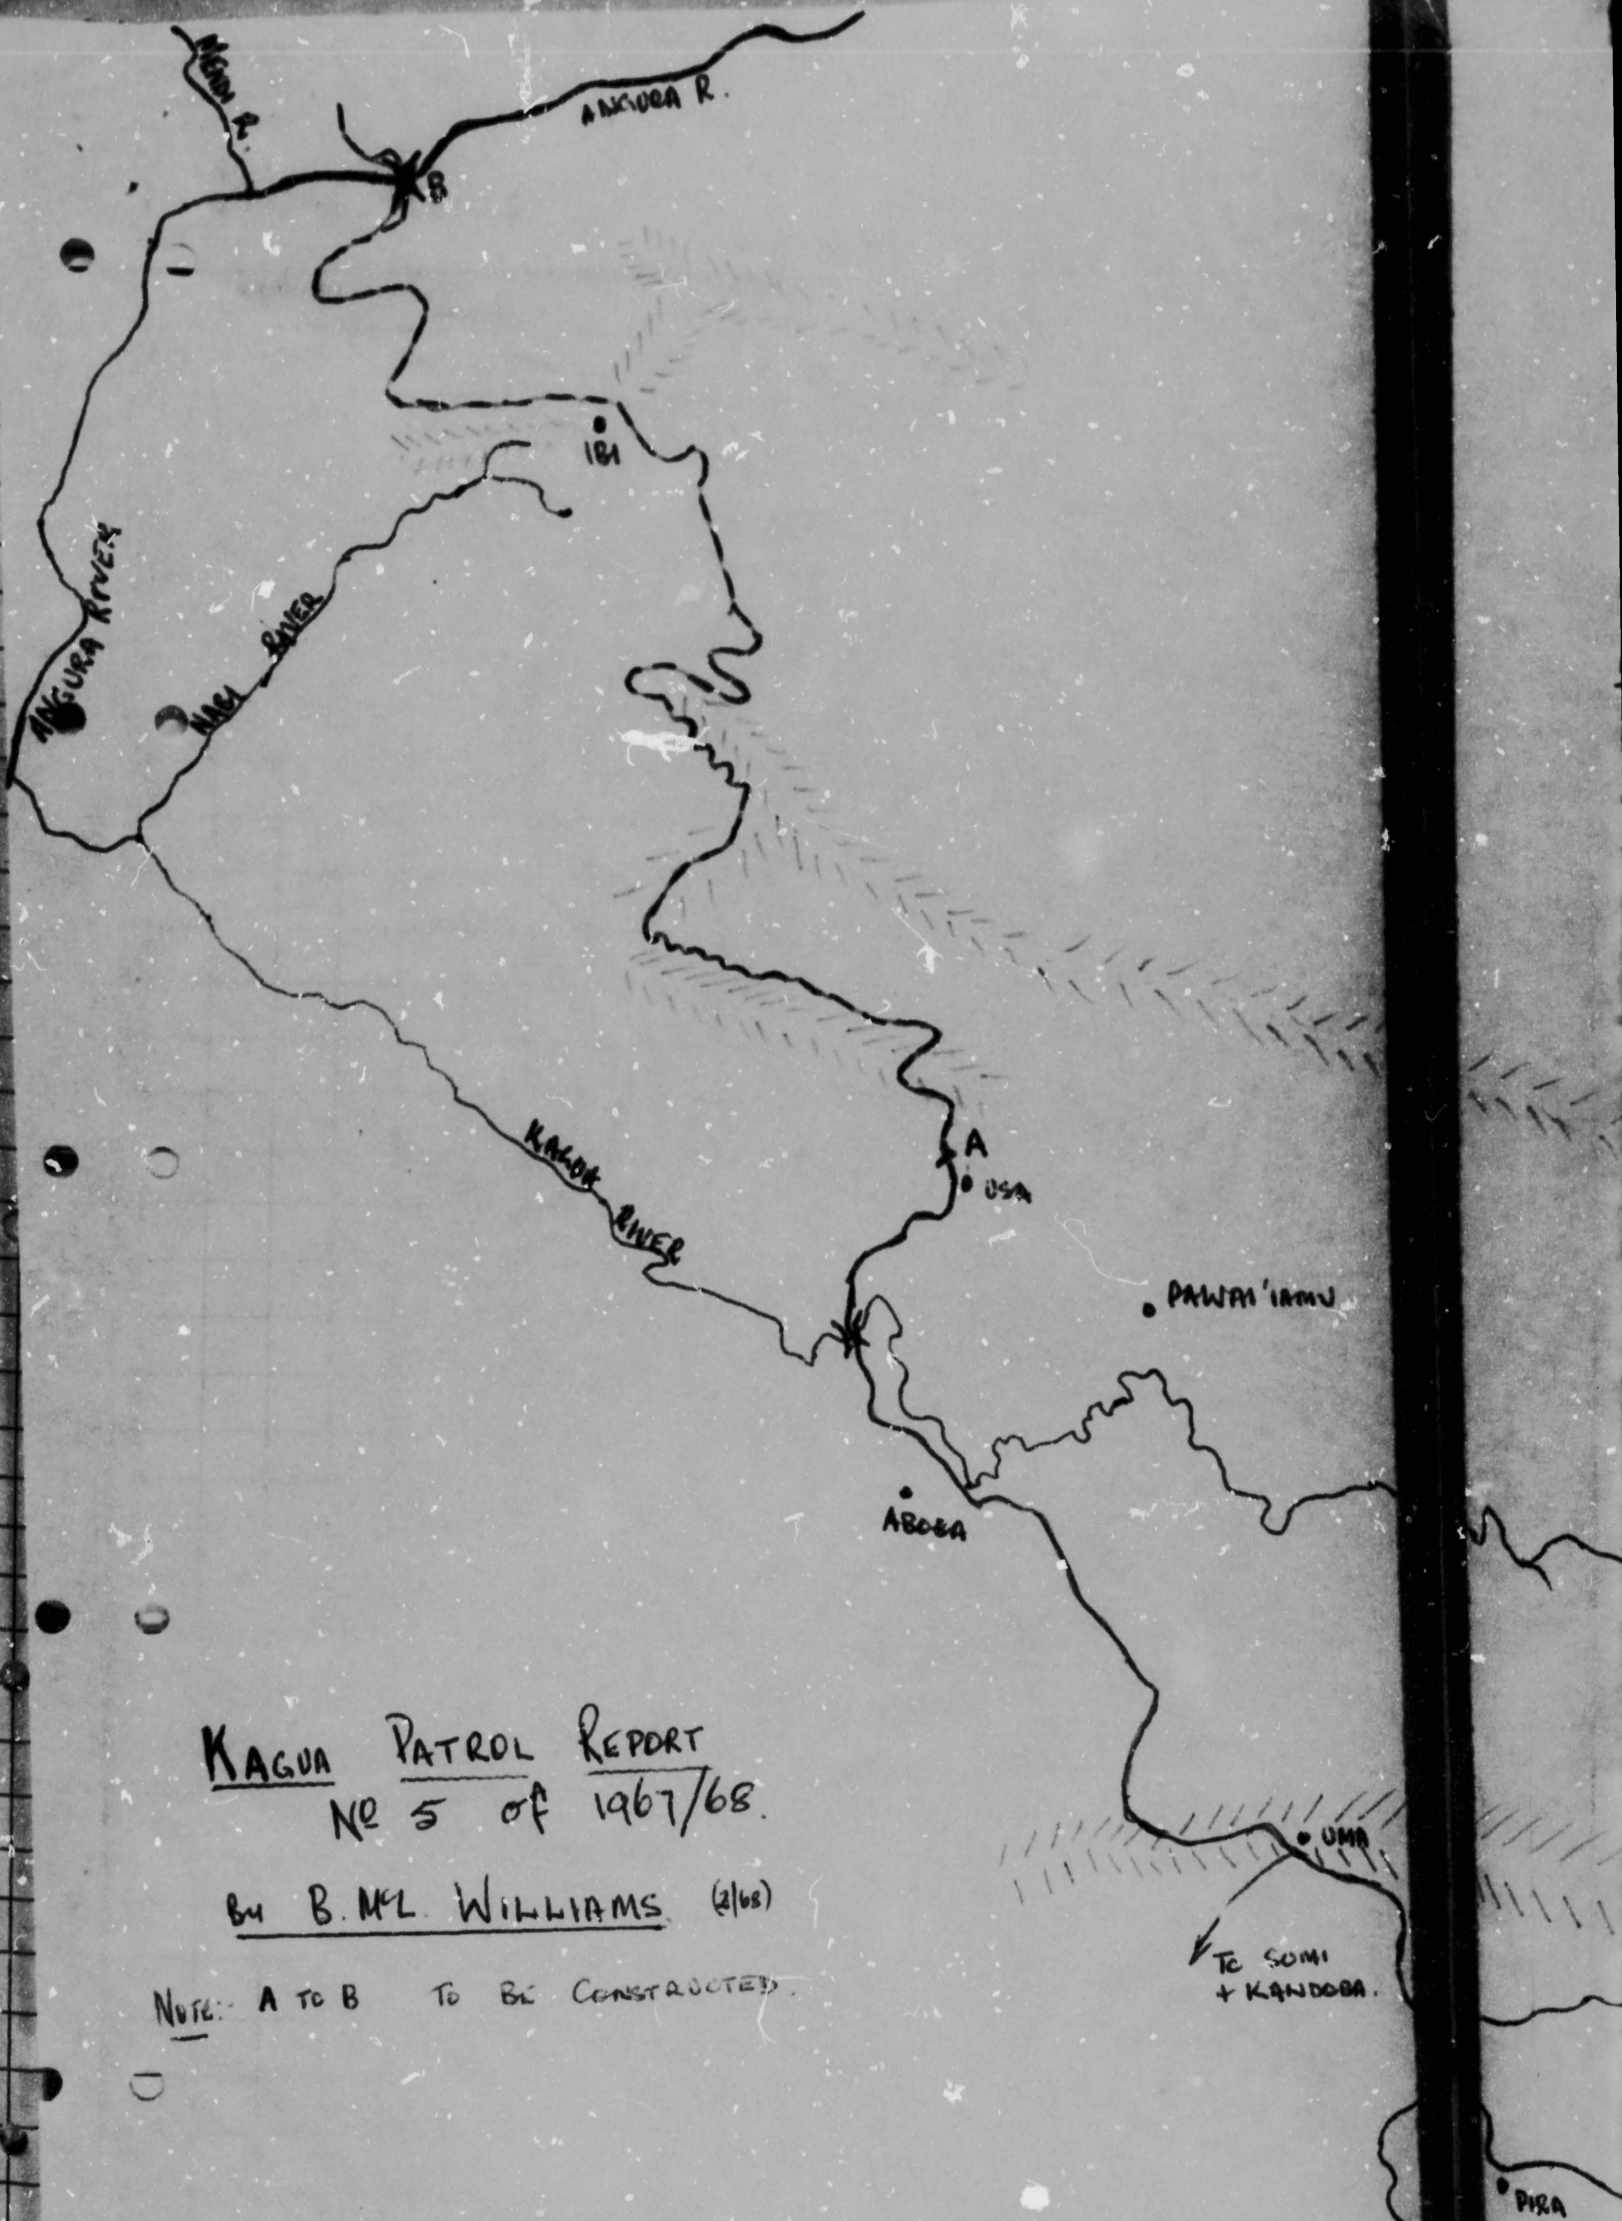 MENDI R.
ANGURA R.
B
IBI
ANGURA RIVER
NAGI RIVER
KAGUA RIVER
A
USA
PAWAI'IAMU
UMA
TO SUMI
+ KANDOBA.
KAGUA PATROL REPORT
No 5 of 1967/68.
By B. McL WILLIAMS (2/68)
NOTE:- A TO B TO BE CONSTRUCTED.
PIRA